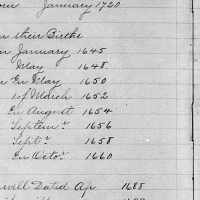 January 1720
their Births
January 1645
May 1648
En May 1650
1st March 1652
En August 1654
Septemr 1656
Septr 1658
En Octor 1660
will Dated Ap. 1688